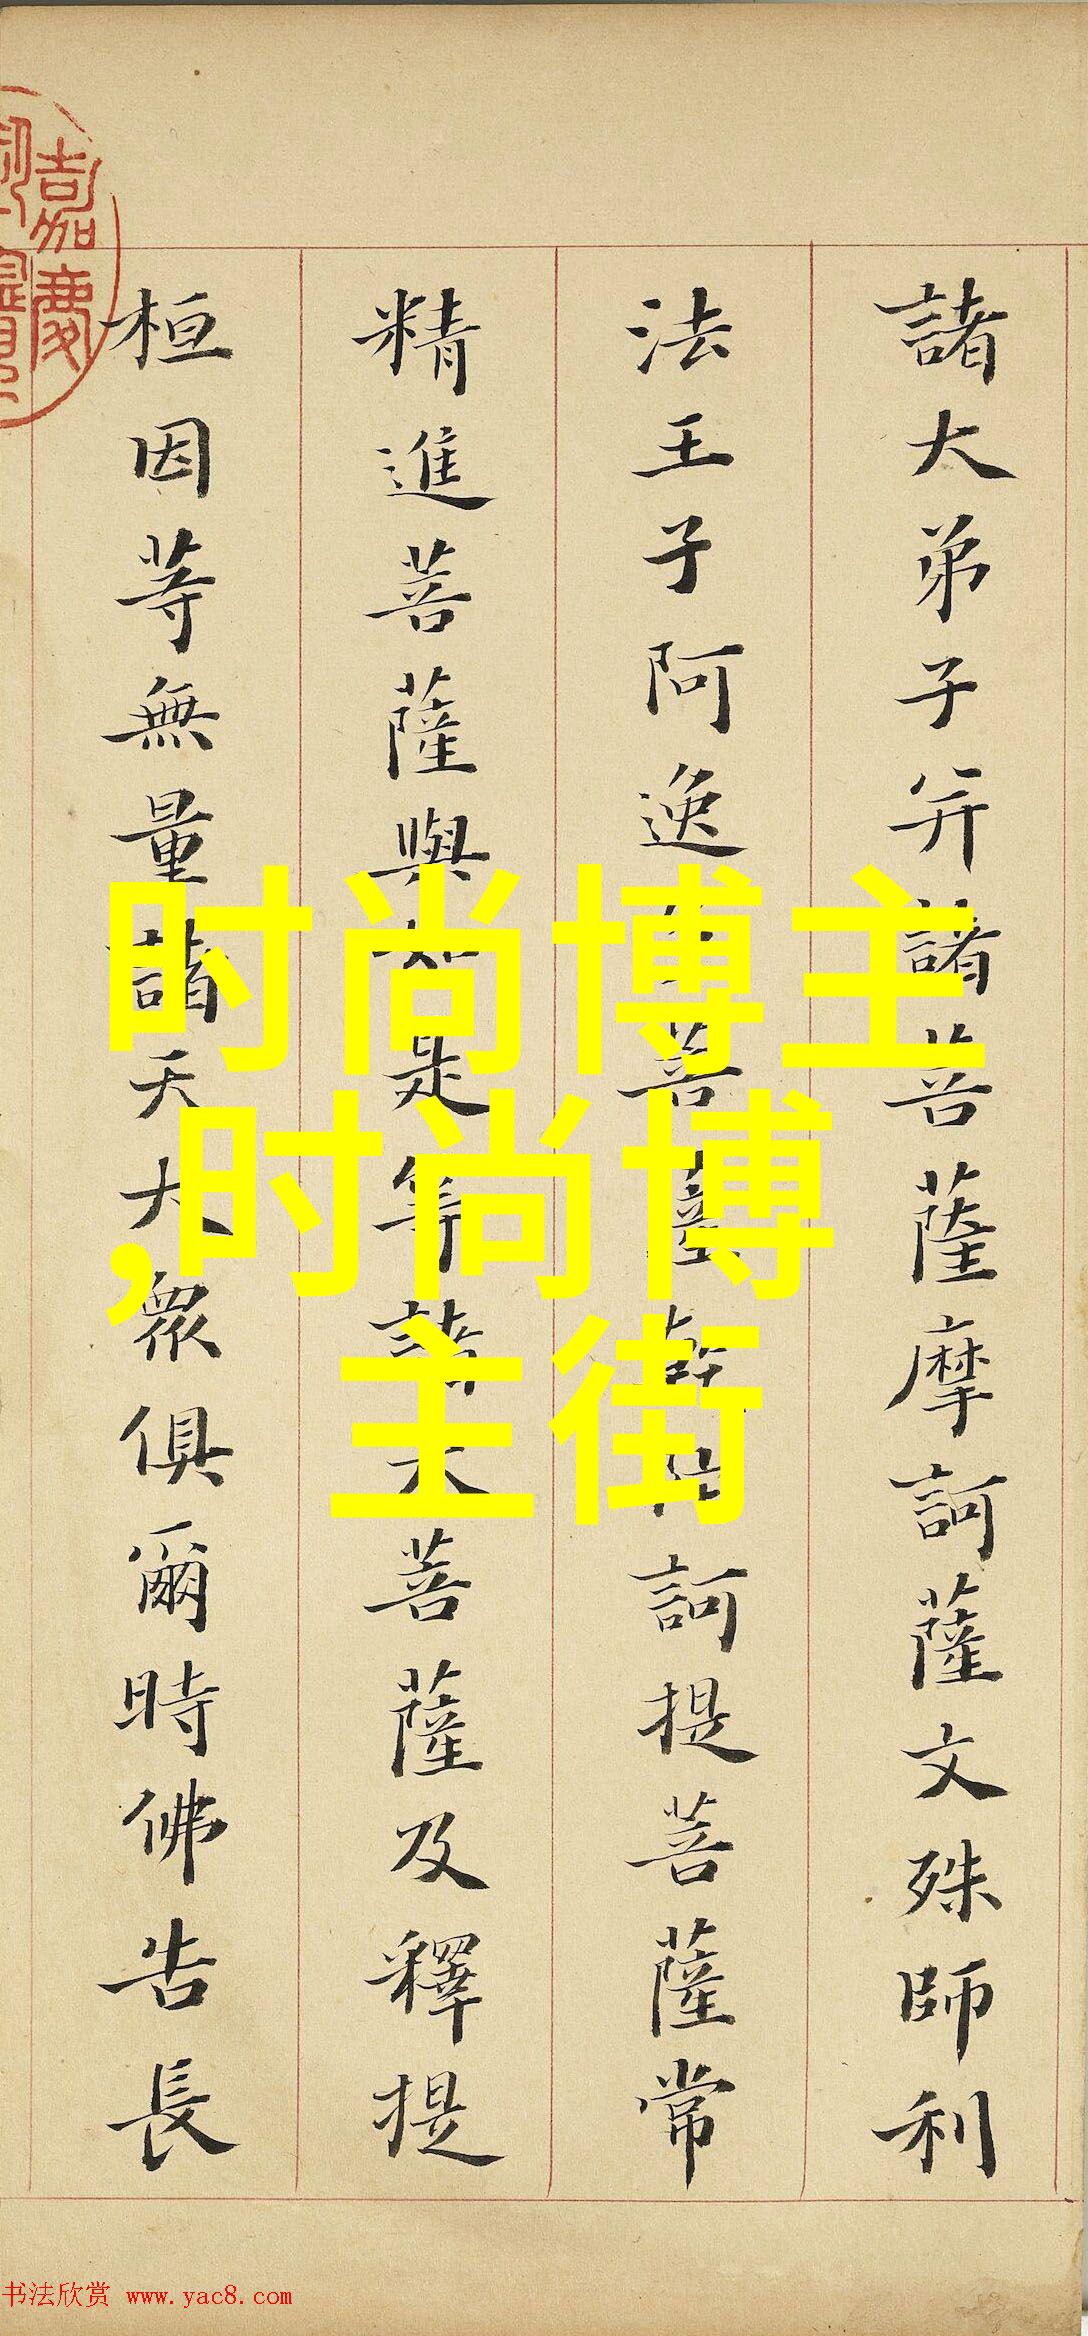 諸大弟子并諸菩薩摩訶薩文殊師利
法王子阿逸菩薩訶提菩薩常
精進菩薩與如是等諸大菩薩及釋提
桓因等無量諸天大眾俱爾時佛告長
嘉慶
时尚博主
,时尚博
主街
书法欣赏 www.yac8.com